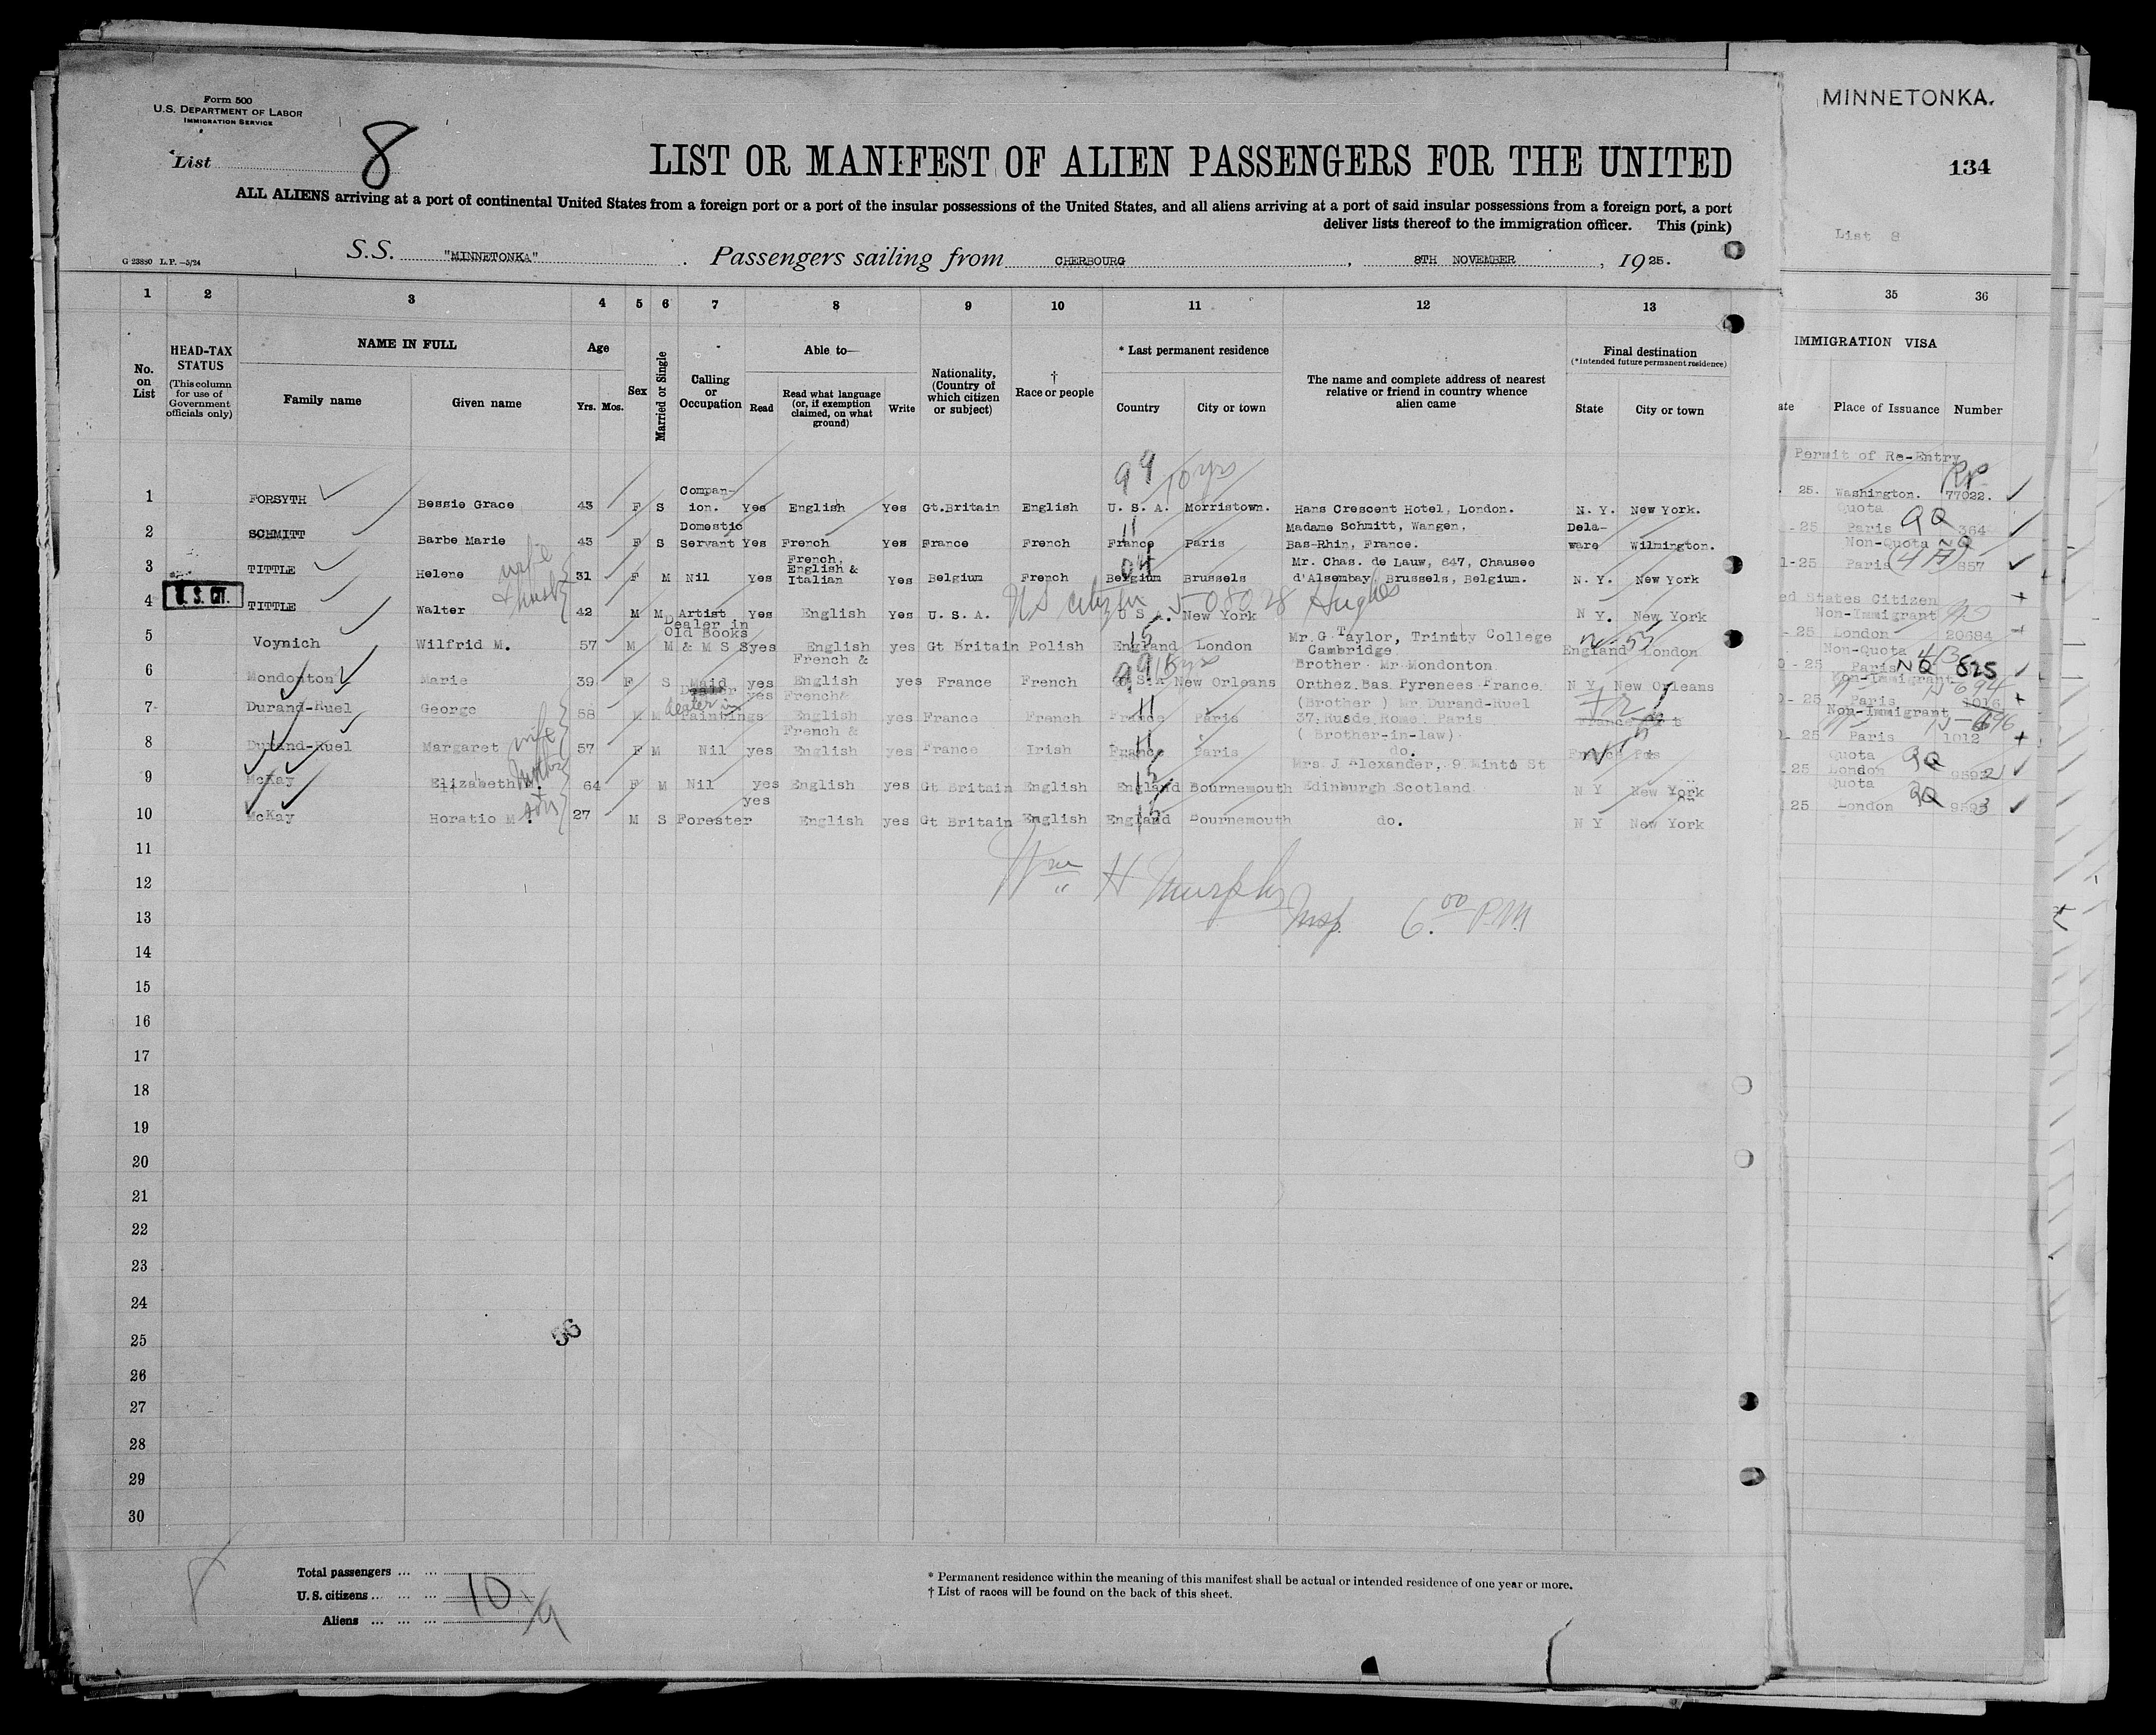 Form 500
U.S. DEPARTMENT OF LABOR
IMMIGRATION SERVICE
List 8
LIST OR MANIFEST OF ALIEN PASSENGERS FOR THE UNITED
ALL ALIENS arriving at a port of continental United States from a foreign port or a port of the insular possessions of the United States, and all aliens arriving at a port of said insular possessions from a foreign port, a port
deliver lists thereof to the immigration officer. This (pink)
G 23880 L.P.—5/24
S.S. "MINNETONKA". Passengers sailing from CHERBOURG, 8TH NOVEMBER, 1925.
1 2 3 4 5 6 7 8 9 10 11 12 13
No. on List
HEAD-TAX STATUS
(This column for use of Government officials only)
NAME IN FULL
Family name Given name
Age
Yrs. Mos.
Sex
Married or Single
Calling or Occupation
Able to—
Read
Read what language (or, if exemption claimed, on what ground)
Write
Nationality, (Country of which citizen or subject)
† Race or people
* Last permanent residence
Country City or town
The name and complete address of nearest relative or friend in country whence alien came
Final destination
(*Intended future permanent residence)
State City or town
99 10 yrs
1 FORSYTH Bessie Grace 43 F S Compan-ion. Yes English Yes Gt.Britain English U. S. A. Morristown. Hans Crescent Hotel, London. N. Y. New York.
2 SCHMITT Barbe Marie 43 F S Domestic Servant Yes French Yes France French France Paris Madame Schmitt, Wangen, Bas-Rhin, France. Dela-ware Wilmington.
3 TITTLE Helene wife 31 F M Nil Yes French, English & Italian Yes Belgium French Belgium Brussels Mr. Chas. de Lauw, 647, Chausee d'Alsembay, Brussels, Belgium. N. Y. New York
U. S. CIT.
4 TITTLE Walter & husb 42 M M Artist Yes English Yes U. S. A. US citizen 508028 Hughes U S A. New York N Y. New York
5 Voynich Wilfrid M. 57 M M Dealer in Old Books & M S S yes English yes Gt Britain Polish England London Mr. G Taylor, Trinity College Cambridge England London
6 Mondonton Marie 39 F S Maid yes French & English yes France French U.S.A New Orleans Brother Mr Mondonton Orthez Bas Pyrenees France. N Y New Orleans
7 Durand-Ruel George 58 M M dealer in Paintings yes French& English yes France French France Paris (Brother ) Mr Durand-Ruel 37, Rusde Rome Paris France
8 Durand-Ruel Margaret wife 57 F M Nil yes French & English yes France Irish France Paris ( Brother-in-law) do.
9 McKay Elizabeth M. mother 64 F M Nil yes English yes Gt Britain English England Bournemouth Mrs J Alexander, 9 Minto St Edinburgh Scotland N Y New York
10 McKay Horatio M. son 27 M S Forester yes English yes Gt Britain English England Bournemouth do. N Y New York
11
12
Wm H Murphy
13
Insp. 6.00 PM
14
15
16
17
18
19
20
21
22
23
24
25
56
26
27
28
29
30
Total passengers ... ...
U. S. citizens... ... ... 10
Aliens ... ... ... 9
* Permanent residence within the meaning of this manifest shall be actual or intended residence of one year or more.
† List of races will be found on the back of this sheet.
MINNETONKA.
134
List 8
35 36
IMMIGRATION VISA
ate Place of Issuance Number
Permit of Re-Entry
25. Washington. 77022.
Quota
-25 Paris 364
Non-Quota NQ
1-25 Paris 857
ed States Citizen
Non-Immigrant
- 25 London 20684
Non-Quota
0-25 Paris NQ 625
Non-Immigrant
0- 25 Paris 1016
Non-Immigrant
- 25 Paris 1012
Quota
25 London
Quota
25 London